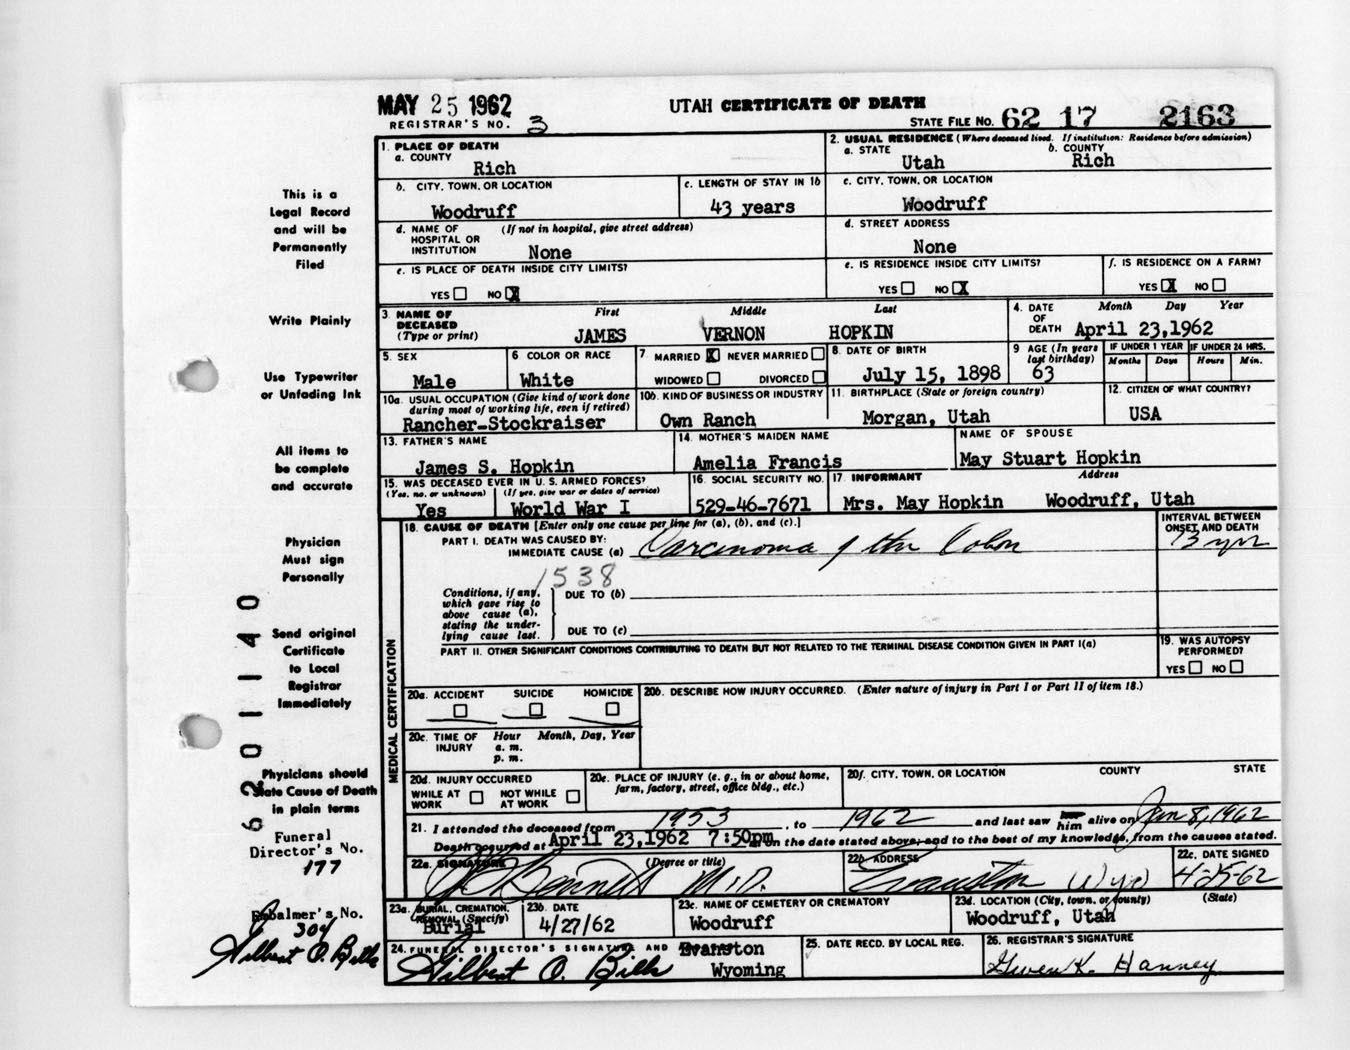 MAY 25 1962
UTAH CERTIFICATE OF DEATH
REGISTRAR'S NO. 3
STATE FILE NO. 62 17 2163
1. PLACE OF DEATH
a. COUNTY
Rich
2. USUAL RESIDENCE (Where deceased lived. If institution: Residence before admission)
a. STATE
Utah
b. COUNTY
Rich
b. CITY, TOWN, OR LOCATION
Woodruff
c. LENGTH OF STAY IN 1b
43 years
c. CITY, TOWN, OR LOCATION
Woodruff
d. NAME OF HOSPITAL OR INSTITUTION
(If not in hospital, give street address)
None
d. STREET ADDRESS
None
e. IS PLACE OF DEATH INSIDE CITY LIMITS?
YES NO X
e. IS RESIDENCE INSIDE CITY LIMITS?
YES NO X
f. IS RESIDENCE ON A FARM?
YES X NO
3. NAME OF DECEASED
(Type or print)
First Middle Last
JAMES VERNON HOPKIN
4. DATE OF DEATH
Month Day Year
April 23,1962
5. SEX
Male
6 COLOR OR RACE
White
7 MARRIED X NEVER MARRIED
WIDOWED DIVORCED
8. DATE OF BIRTH
July 15, 1898
9 AGE (In years last birthday)
63
IF UNDER 1 YEAR
Months Days
IF UNDER 24 HRS.
Hours Min.
10a. USUAL OCCUPATION (Give kind of work done during most of working life, even if retired)
Rancher-Stockraiser
10b. KIND OF BUSINESS OR INDUSTRY
Own Ranch
11. BIRTHPLACE (State or foreign country)
Morgan, Utah
12. CITIZEN OF WHAT COUNTRY?
USA
13. FATHER'S NAME
James S. Hopkin
14. MOTHER'S MAIDEN NAME
Amelia Francis
NAME OF SPOUSE
May Stuart Hopkin
15. WAS DECEASED EVER IN U. S. ARMED FORCES?
(Yes, no, or unknown) (If yes, give war or dates of service)
Yes World War I
16. SOCIAL SECURITY NO.
529-46-7671
17. INFORMANT Address
Mrs. May Hopkin Woodruff, Utah
18. CAUSE OF DEATH [Enter only one cause per line for (a), (b), and (c).]
PART I. DEATH WAS CAUSED BY:
IMMEDIATE CAUSE (a) Carcinoma of the Colon
INTERVAL BETWEEN ONSET AND DEATH
3 yrs
1538
Conditions, if any, which gave rise to above cause (a), stating the underlying cause last.
DUE TO (b)
DUE TO (c)
PART II. OTHER SIGNIFICANT CONDITIONS CONTRIBUTING TO DEATH BUT NOT RELATED TO THE TERMINAL DISEASE CONDITION GIVEN IN PART I(a)
19. WAS AUTOPSY PERFORMED?
YES NO
MEDICAL CERTIFICATION
20a. ACCIDENT SUICIDE HOMICIDE
20b. DESCRIBE HOW INJURY OCCURRED. (Enter nature of injury in Part I or Part II of item 18.)
20c. TIME OF INJURY
Hour Month, Day, Year
a. m.
p. m.
20d. INJURY OCCURRED
WHILE AT WORK NOT WHILE AT WORK
20e. PLACE OF INJURY (e. g., in or about home, farm, factory, street, office bldg., etc.)
20f. CITY, TOWN, OR LOCATION COUNTY STATE
21. I attended the deceased from 1953, to 1962 and last saw him alive on Jan 8, 1962
Death occurred at April 23,1962 7:50pm on the date stated above; and to the best of my knowledge, from the causes stated.
22a. SIGNATURE (Degree or title)
Bennett M.D.
22b. ADDRESS
Evanston Wyo
22c. DATE SIGNED
4-25-62
23a. BURIAL, CREMATION, REMOVAL (Specify)
Burial
23b. DATE
4/27/62
23c. NAME OF CEMETERY OR CREMATORY
Woodruff
23d. LOCATION (City, town, or county) (State)
Woodruff, Utah
24. FUNERAL DIRECTOR'S SIGNATURE AND
Gilbert O. Bills
Evanston
Wyoming
25. DATE RECD. BY LOCAL REG.
26. REGISTRAR'S SIGNATURE
Gwen K. Hanney
This is a
Legal Record
and will be
Permanently
Filed
Write Plainly
Use Typewriter
or Unfading Ink
All items to
be complete
and accurate
Physician
Must sign
Personally
Send original
Certificate
to Local
Registrar
Immediately
Physicians should
State Cause of Death
in plain terms
Funeral
Director's No.
177
Embalmer's No.
304
Gilbert O. Bills
6201140